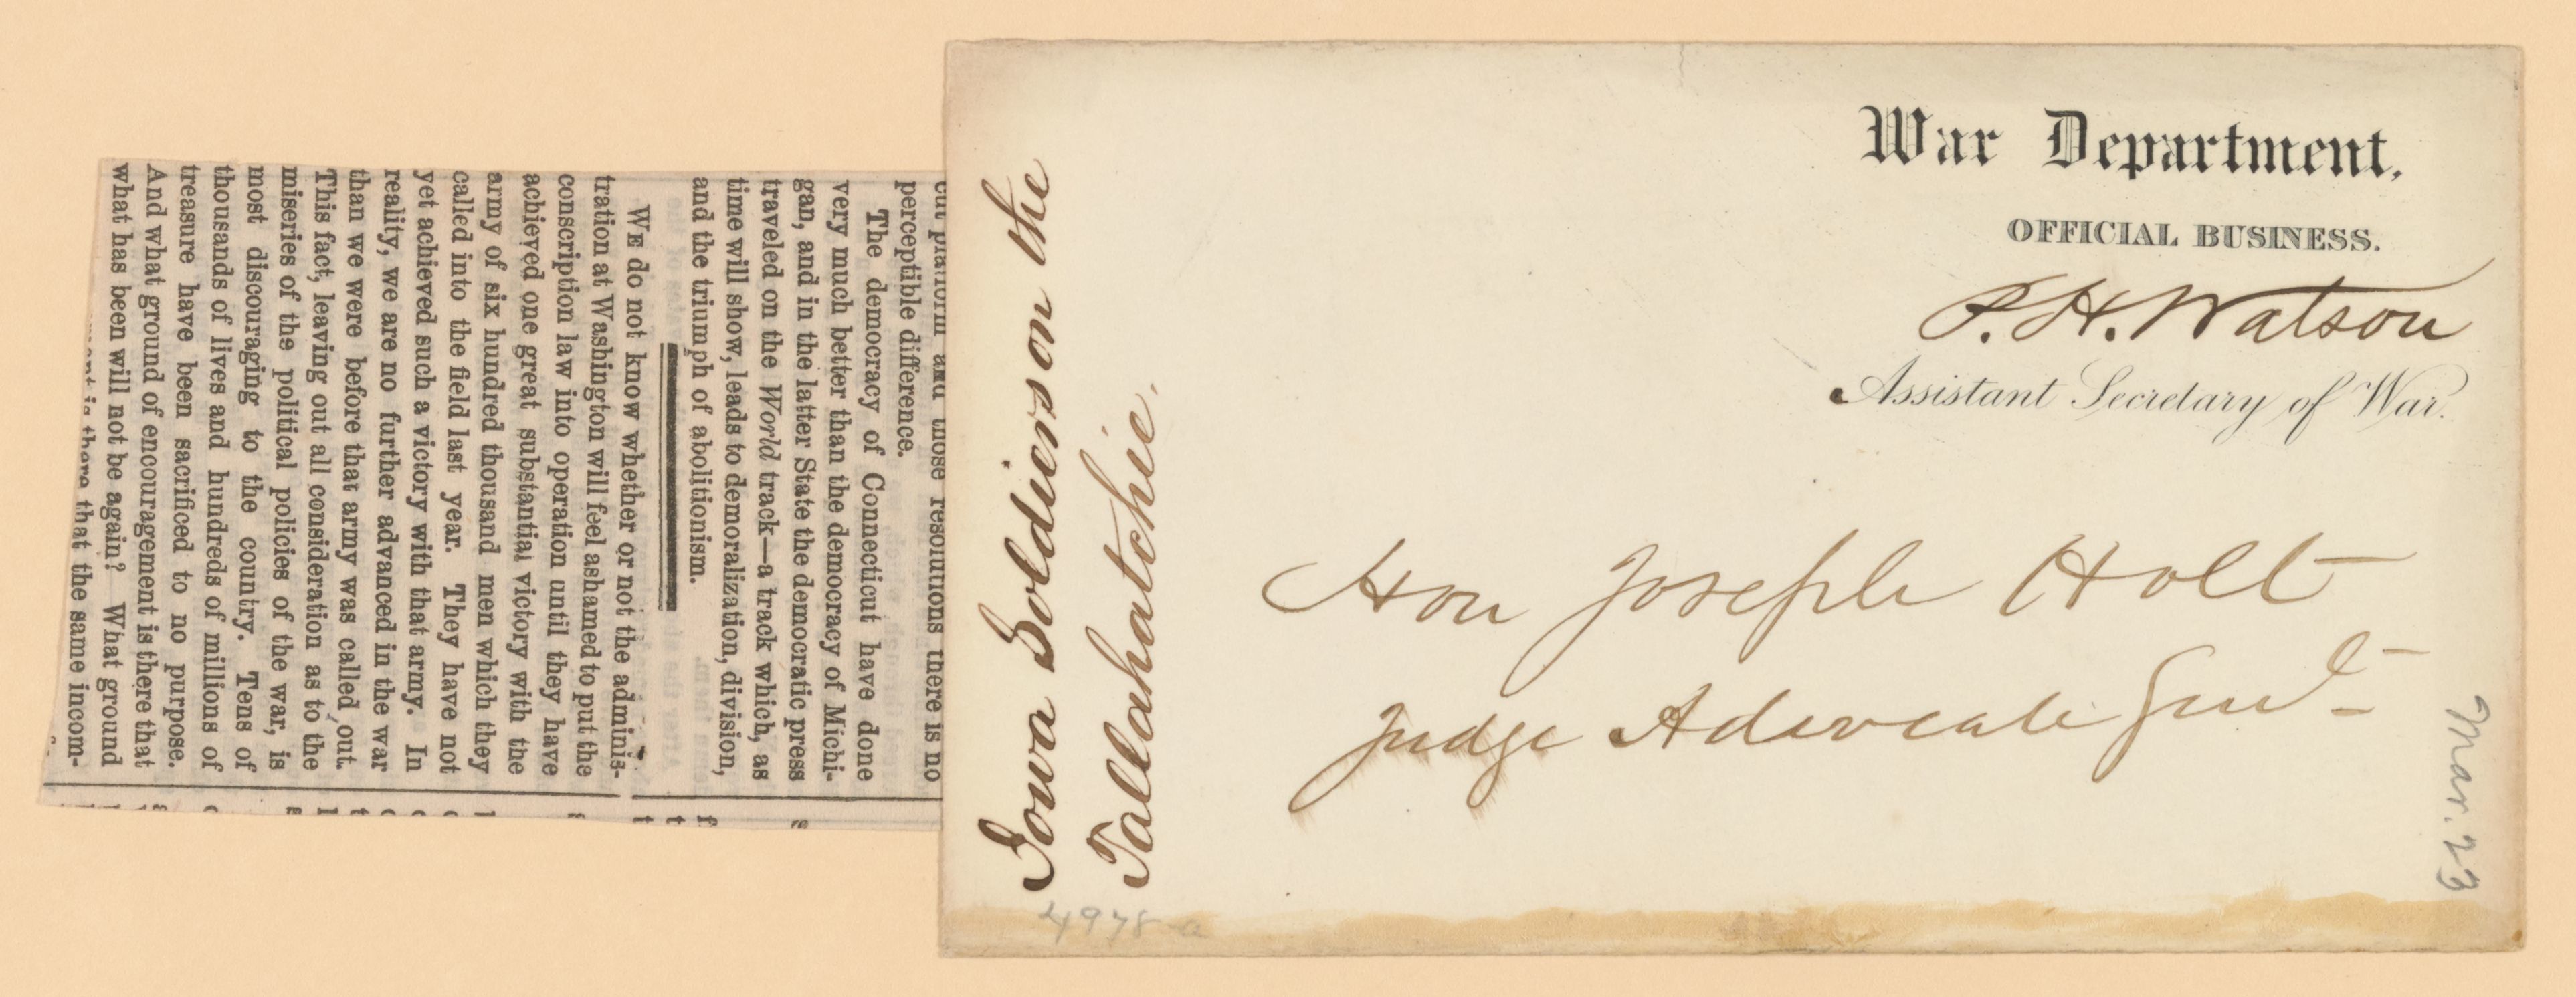 War Department,
OFFICIAL BUSINESS.
P. H. Watson
Assistant Secretary of War.
Hon Joseph Holt
Judge Advocate Genl
Mar. 23
Iowa Soldiers on the
Tallahatchie.
4978 a
cut platform and those resolutions there is no
perceptible difference.
The democracy of Connecticut have done
very much better than the democracy of Michi-
gan, and in the latter State the democratic press
traveled on the World track—a track which, as
time will show, leads to demoralization, division,
and the triumph of abolitionism.
WE do not know whether or not the adminis-
tration at Washington will feel ashamed to put the
conscription law into operation until they have
achieved one great substantial victory with the
army of six hundred thousand men which they
called into the field last year. They have not
yet achieved such a victory with that army. In
reality, we are no further advanced in the war
than we were before that army was called out.
This fact, leaving out all consideration as to the
miseries of the political policies of the war, is
most discouraging to the country. Tens of
thousands of lives and hundreds of millions of
treasure have been sacrificed to no purpose.
And what ground of encouragement is there that
what has been will not be again? What ground
is there that the same incom-